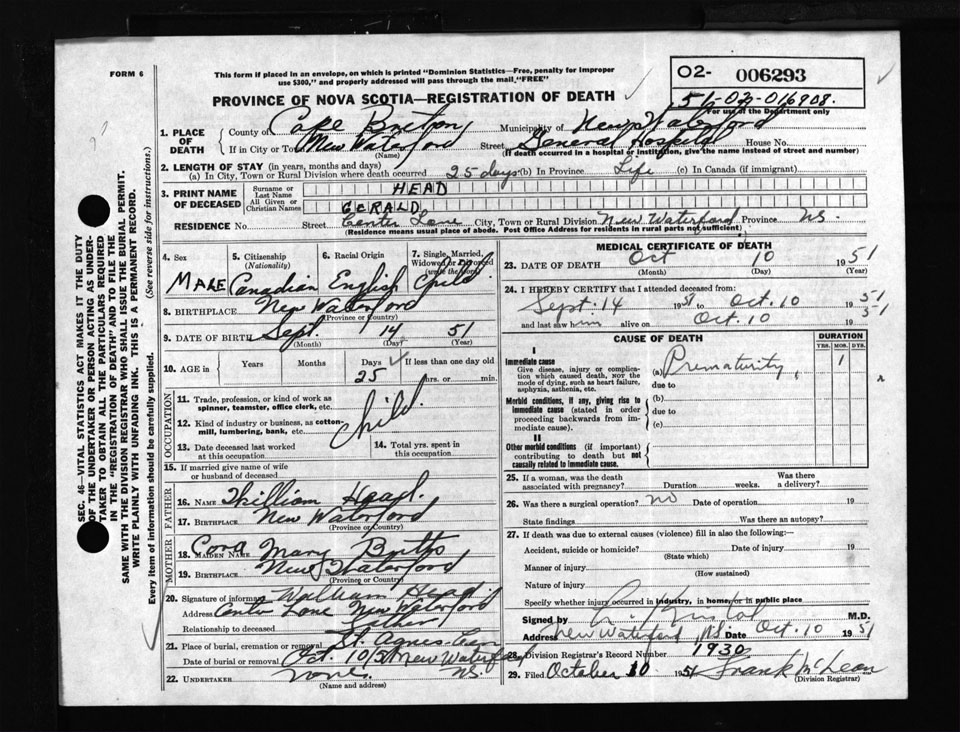 FORM 6
This form if placed in an envelope, on which is printed "Dominion Statistics—Free, penalty for improper
use $300," and properly addressed will pass through the mail "FREE"
O2- 006293
PROVINCE OF NOVA SCOTIA—REGISTRATION OF DEATH
51-02-016908.
For use of the Department only
1. PLACE OF DEATH
County of Cape Breton Municipality of New Waterford
If in City or Town New Waterford Street General Hospital House No.
(Name) (If death occurred in a hospital or institution, give the name instead of street and number)
2. LENGTH OF STAY (in years, months and days)
(a) In City, Town or Rural Division where death occurred 25 days (b) In Province Life (c) In Canada (if immigrant)
3. PRINT NAME OF DECEASED
Surname or Last Name HEAD
All Given or Christian Names GERALD
RESIDENCE No. Street Center Lane City, Town or Rural Division New Waterford Province N.S.
(Residence means usual place of abode. Post Office Address for residents in rural parts not sufficient)
4. Sex
MALE
5. Citizenship (Nationality)
Canadian
6. Racial Origin
English
7. Single, Married, Widowed or Divorced (write the word)
Child
8. BIRTHPLACE New Waterford
(Province or Country)
9. DATE OF BIRTH Sept. 14 51
(Month) (Day) (Year)
10. AGE in Years Months Days If less than one day old
25 hrs. or min.
OCCUPATION
11. Trade, profession, or kind of work as
spinner, teamster, office clerk, etc.
12. Kind of industry or business, as cotton-
mill, lumbering, bank, etc.
Child
13. Date deceased last worked at this occupation
14. Total yrs. spent in this occupation
15. If married give name of wife
or husband of deceased
FATHER
16. NAME William Head.
17. BIRTHPLACE New Waterford
(Province or Country)
MOTHER
18. MAIDEN NAME Cora Mary Butts
19. BIRTHPLACE New Waterford
(Province or Country)
20. Signature of informant William Head
Address Center Lane New Waterford
Relationship to deceased Father
21. Place of burial, cremation or removal St. Agnes Cem
Date of burial or removal Oct. 10/51 New Waterford
22. UNDERTAKER none. N.S.
(Name and address)
MEDICAL CERTIFICATE OF DEATH
23. DATE OF DEATH Oct 10 1951
(Month) (Day) (Year)
24. I HEREBY CERTIFY that I attended deceased from:
Sept. 14 51 to Oct. 10 1951
and last saw him alive on Oct. 10 1951
CAUSE OF DEATH
DURATION
YRS. MOS. DYS.
I
Immediate cause
Give disease, injury or complica-
tion which caused death, NOT the
mode of dying, such as heart failure,
asphyxia, asthenia, etc.
(a) Prematurity, 1
due to
Morbid conditions, if any, giving rise to
immediate cause (stated in order
proceeding backwards from im-
mediate cause).
(b)
due to
(c)
II
Other morbid conditions (if important)
contributing to death but not
causally related to immediate cause.
25. If a woman, was the death
associated with pregnancy? Duration weeks. Was there a delivery?
26. Was there a surgical operation? no Date of operation 19
State findings Was there an autopsy?
27. If death was due to external causes (violence) fill in also the following:—
Accident, suicide or homicide? Date of injury 19
(State which)
Manner of injury
(How sustained)
Nature of injury
Specify whether injury occurred in industry, in home, or in public place
Signed by M.D.
Address New Waterford N.S. Date Oct. 10 1951
28. Division Registrar's Record Number 1930
29. Filed October 10 1951 Frank McLean
(Division Registrar)
SEC. 46—VITAL STATISTICS ACT MAKES IT THE DUTY
OF THE UNDERTAKER OR PERSON ACTING AS UNDER-
TAKER TO OBTAIN ALL THE PARTICULARS REQUIRED
IN THE "REGISTRATION OF DEATH" AND TO FILE THE
SAME WITH THE DIVISION REGISTRAR WHO SHALL ISSUE THE BURIAL PERMIT.
WRITE PLAINLY WITH UNFADING INK. THIS IS A PERMANENT RECORD.
Every item of information should be carefully supplied. (See reverse side for instructions.)